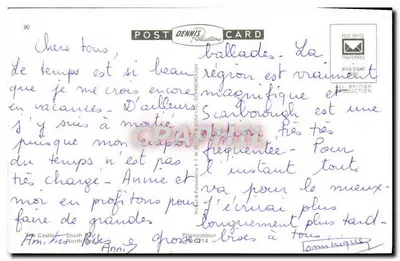 90
POST CARD
DENNIS
Productions
Chers tous,
Le temps est si beau
que je me crois encore
en vacances - D'ailleurs
j'y suis à moitié
puisque mon emploi
du temps n'est pas
très chargé - Annie et
moi en profitons pour
faire de grandes
ballades - La
région est vraiment
magnifique et
Scarborough est une
station très très
fréquentée - Pour
l'instant tout
va pour le mieux -
J'écrirai plus
longuement plus tard -
Amitiés
Annie
et grosses
bises à tous
Dominique
Castle
South Bay
North
Photocolour
ALL BRITISH
PRODUCTION